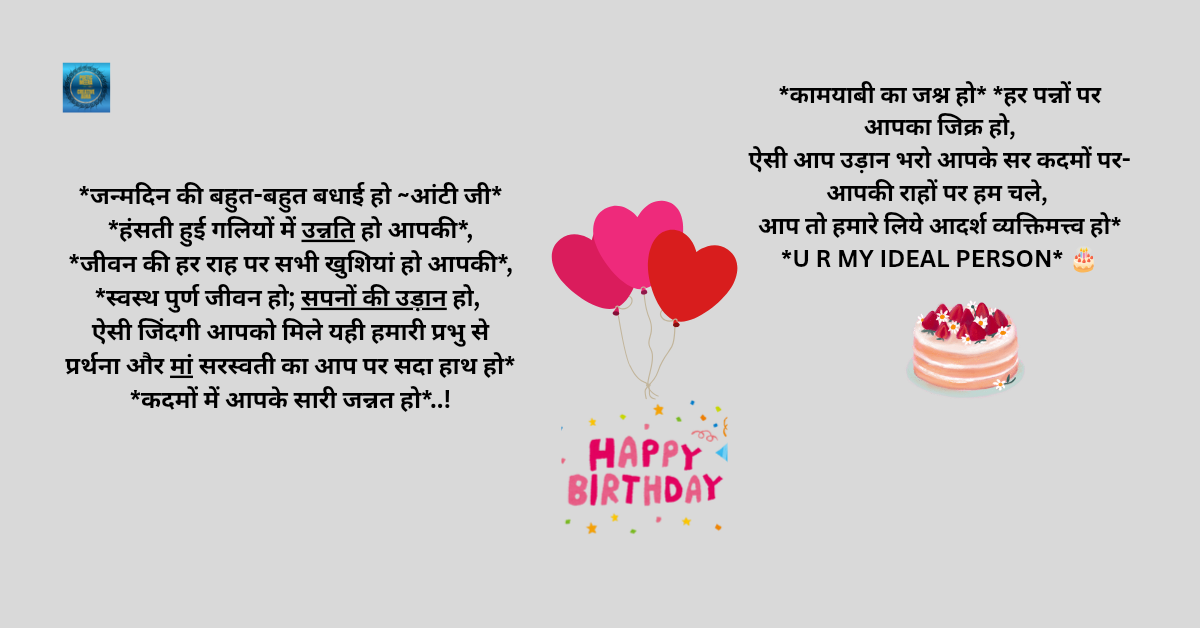 *जन्मदिन की बहुत-बहुत बधाई हो ~आंटी जी*
*हंसती हुई गलियों में उन्नति हो आपकी*,
*जीवन की हर राह पर सभी खुशियां हो आपकी*,
*स्वस्थ पुर्ण जीवन हो; सपनों की उड़ान हो,
ऐसी जिंदगी आपको मिले यही हमारी प्रभु से
प्रर्थना और मां सरस्वती का आप पर सदा हाथ हो*
*कदमों में आपके सारी जन्नत हो*..!
HAPPY
BIRTHDAY
*कामयाबी का जश्न हो* *हर पन्नों पर
आपका जिक्र हो,
ऐसी आप उड़ान भरो आपके सर कदमों पर-
आपकी राहों पर हम चले,
आप तो हमारे लिये आदर्श व्यक्तिमत्त्व हो*
*U R MY IDEAL PERSON* 🎂